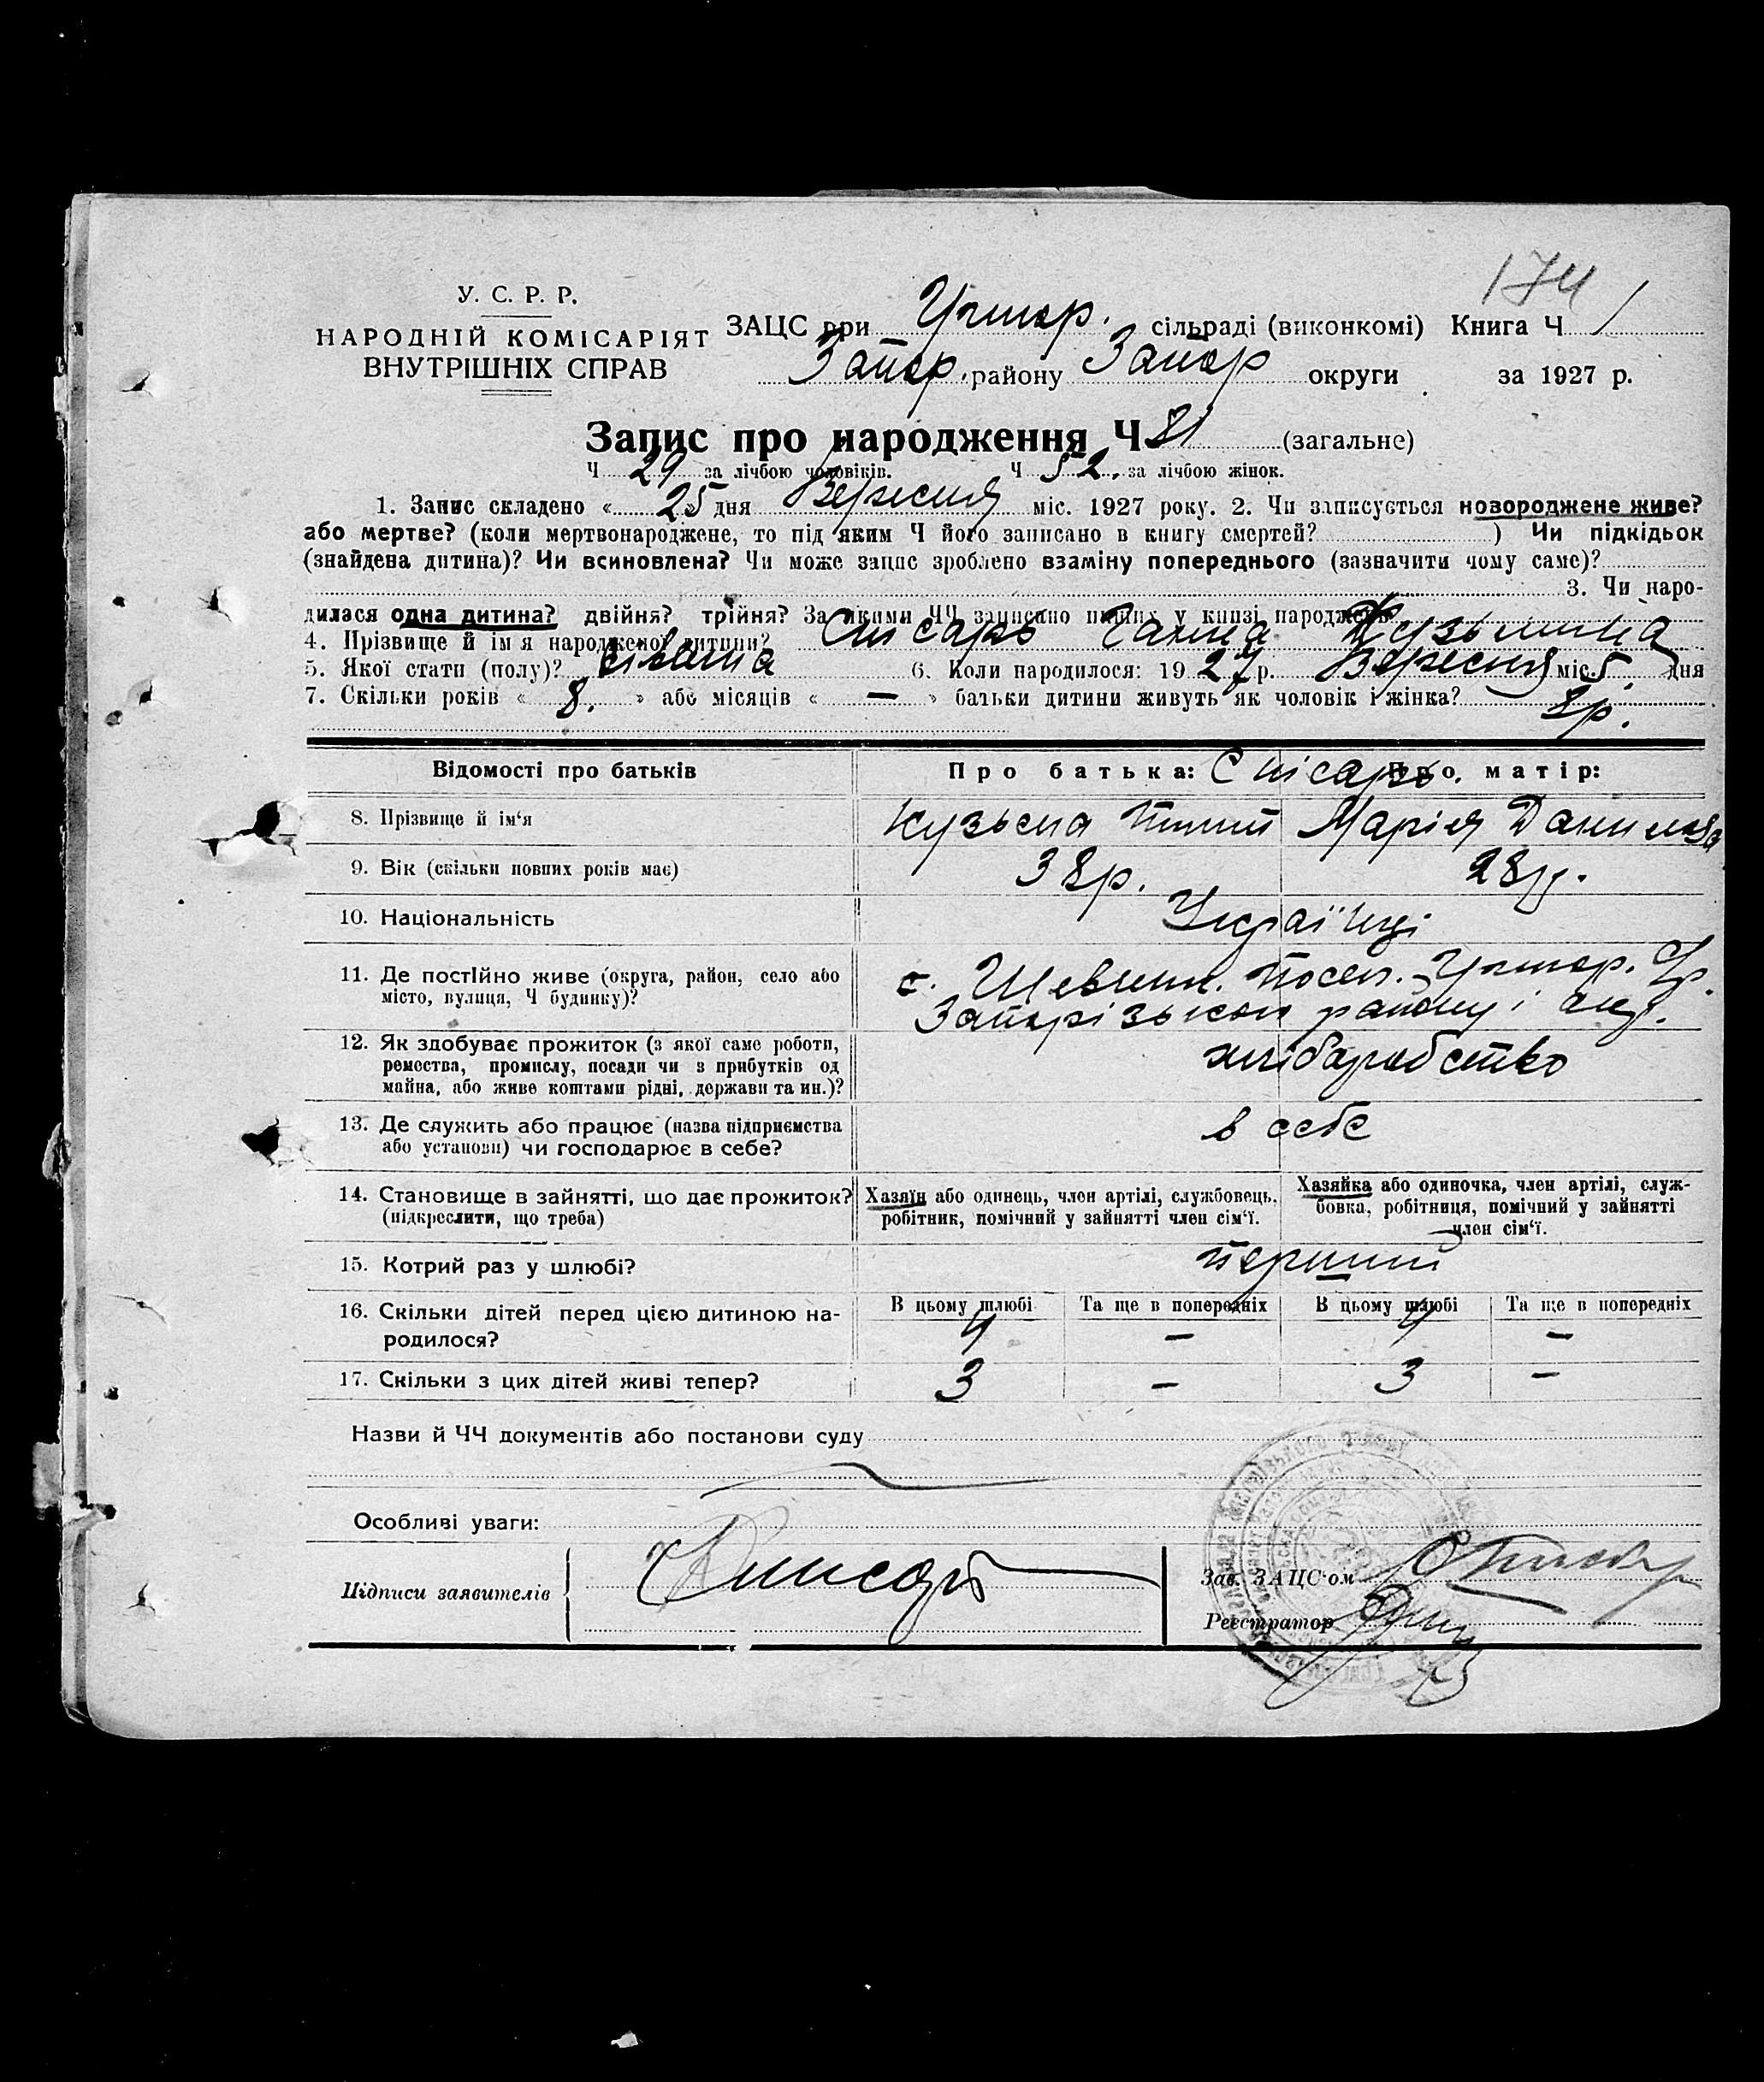 174
У. С. Р. Р.
НАРОДНІЙ КОМІСАРІЯТ
ВНУТРІШНІХ СПРАВ
ЗАЦС при сільраді (виконкомі) Книга Ч 1
Запор. району Запор округи за 1927 р.
Запис про народження Ч 81 (загальне)
Ч 29 за лічбою чоловіків. Ч 52. за лічбою жінок.
1. Запис складено « 25 » дня Вересня міс. 1927 року. 2. Чи записується новороджене живе?
або мертве? (коли мертвонароджене, то під яким Ч його записано в книгу смертей? ) Чи підкідьок
(знайдена дитина)? Чи всиновлена? Чи може запис зроблено взаміну попереднього (зазначити чому саме)?
3. Чи наро-
дилася одна дитина? двійня? трійня? За якими ЧЧ записано інших у книзі народжень
4. Прізвище й ім'я народженої дитини? Снісарь Ганна Кузьмина
5. Якої стати (полу)? 6. Коли народилося: 1927 р. Вересня міс. 5. дня
7. Скільки років « 8. » або місяців « — » батьки дитини живуть як чоловік і жінка? 8р.
Відомості про батьків Про батька: Снісарь. Про матір:
8. Прізвище й ім‘я Кузьма Марія Данилова
9. Вік (скільки повних років має) 38р. 28р.
10. Національність Українці
11. Де постійно живе (округа, район, село або
місто, вулиця, Ч будинку)?
с. Шевченк. посел.
Запорізького району і окр.
12. Як здобуває прожиток (з якої саме роботи,
ремества, промислу, посади чи з прибутків од
майна, або живе коштами рідні, держави та ин.)?
хліборобство
13. Де служить або працює (назва підприємства
або установи) чи господарює в себе?
в себе
14. Становище в зайнятті, що дає прожиток?
(підкреслити, що треба)
Хазяїн або одинець, член артілі, службовець,
робітник, помічний у зайнятті член сім‘ї.
Хазяйка або одиночка, член артілі, служ-
бовка, робітниця, помічний у зайнятті
член сім‘ї.
15. Котрий раз у шлюбі? перший
16. Скільки дітей перед цією дитиною на-
родилося?
В цьому шлюбі Та ще в попередніх В цьому шлюбі Та ще в попередніх
4 — 4 —
17. Скільки з цих дітей живі тепер? 3 — 3 —
Назви й ЧЧ документів або постанови суду
Особливі уваги:
Підписи заявителів
Зав. ЗАЦС‘ом
Реєстратор